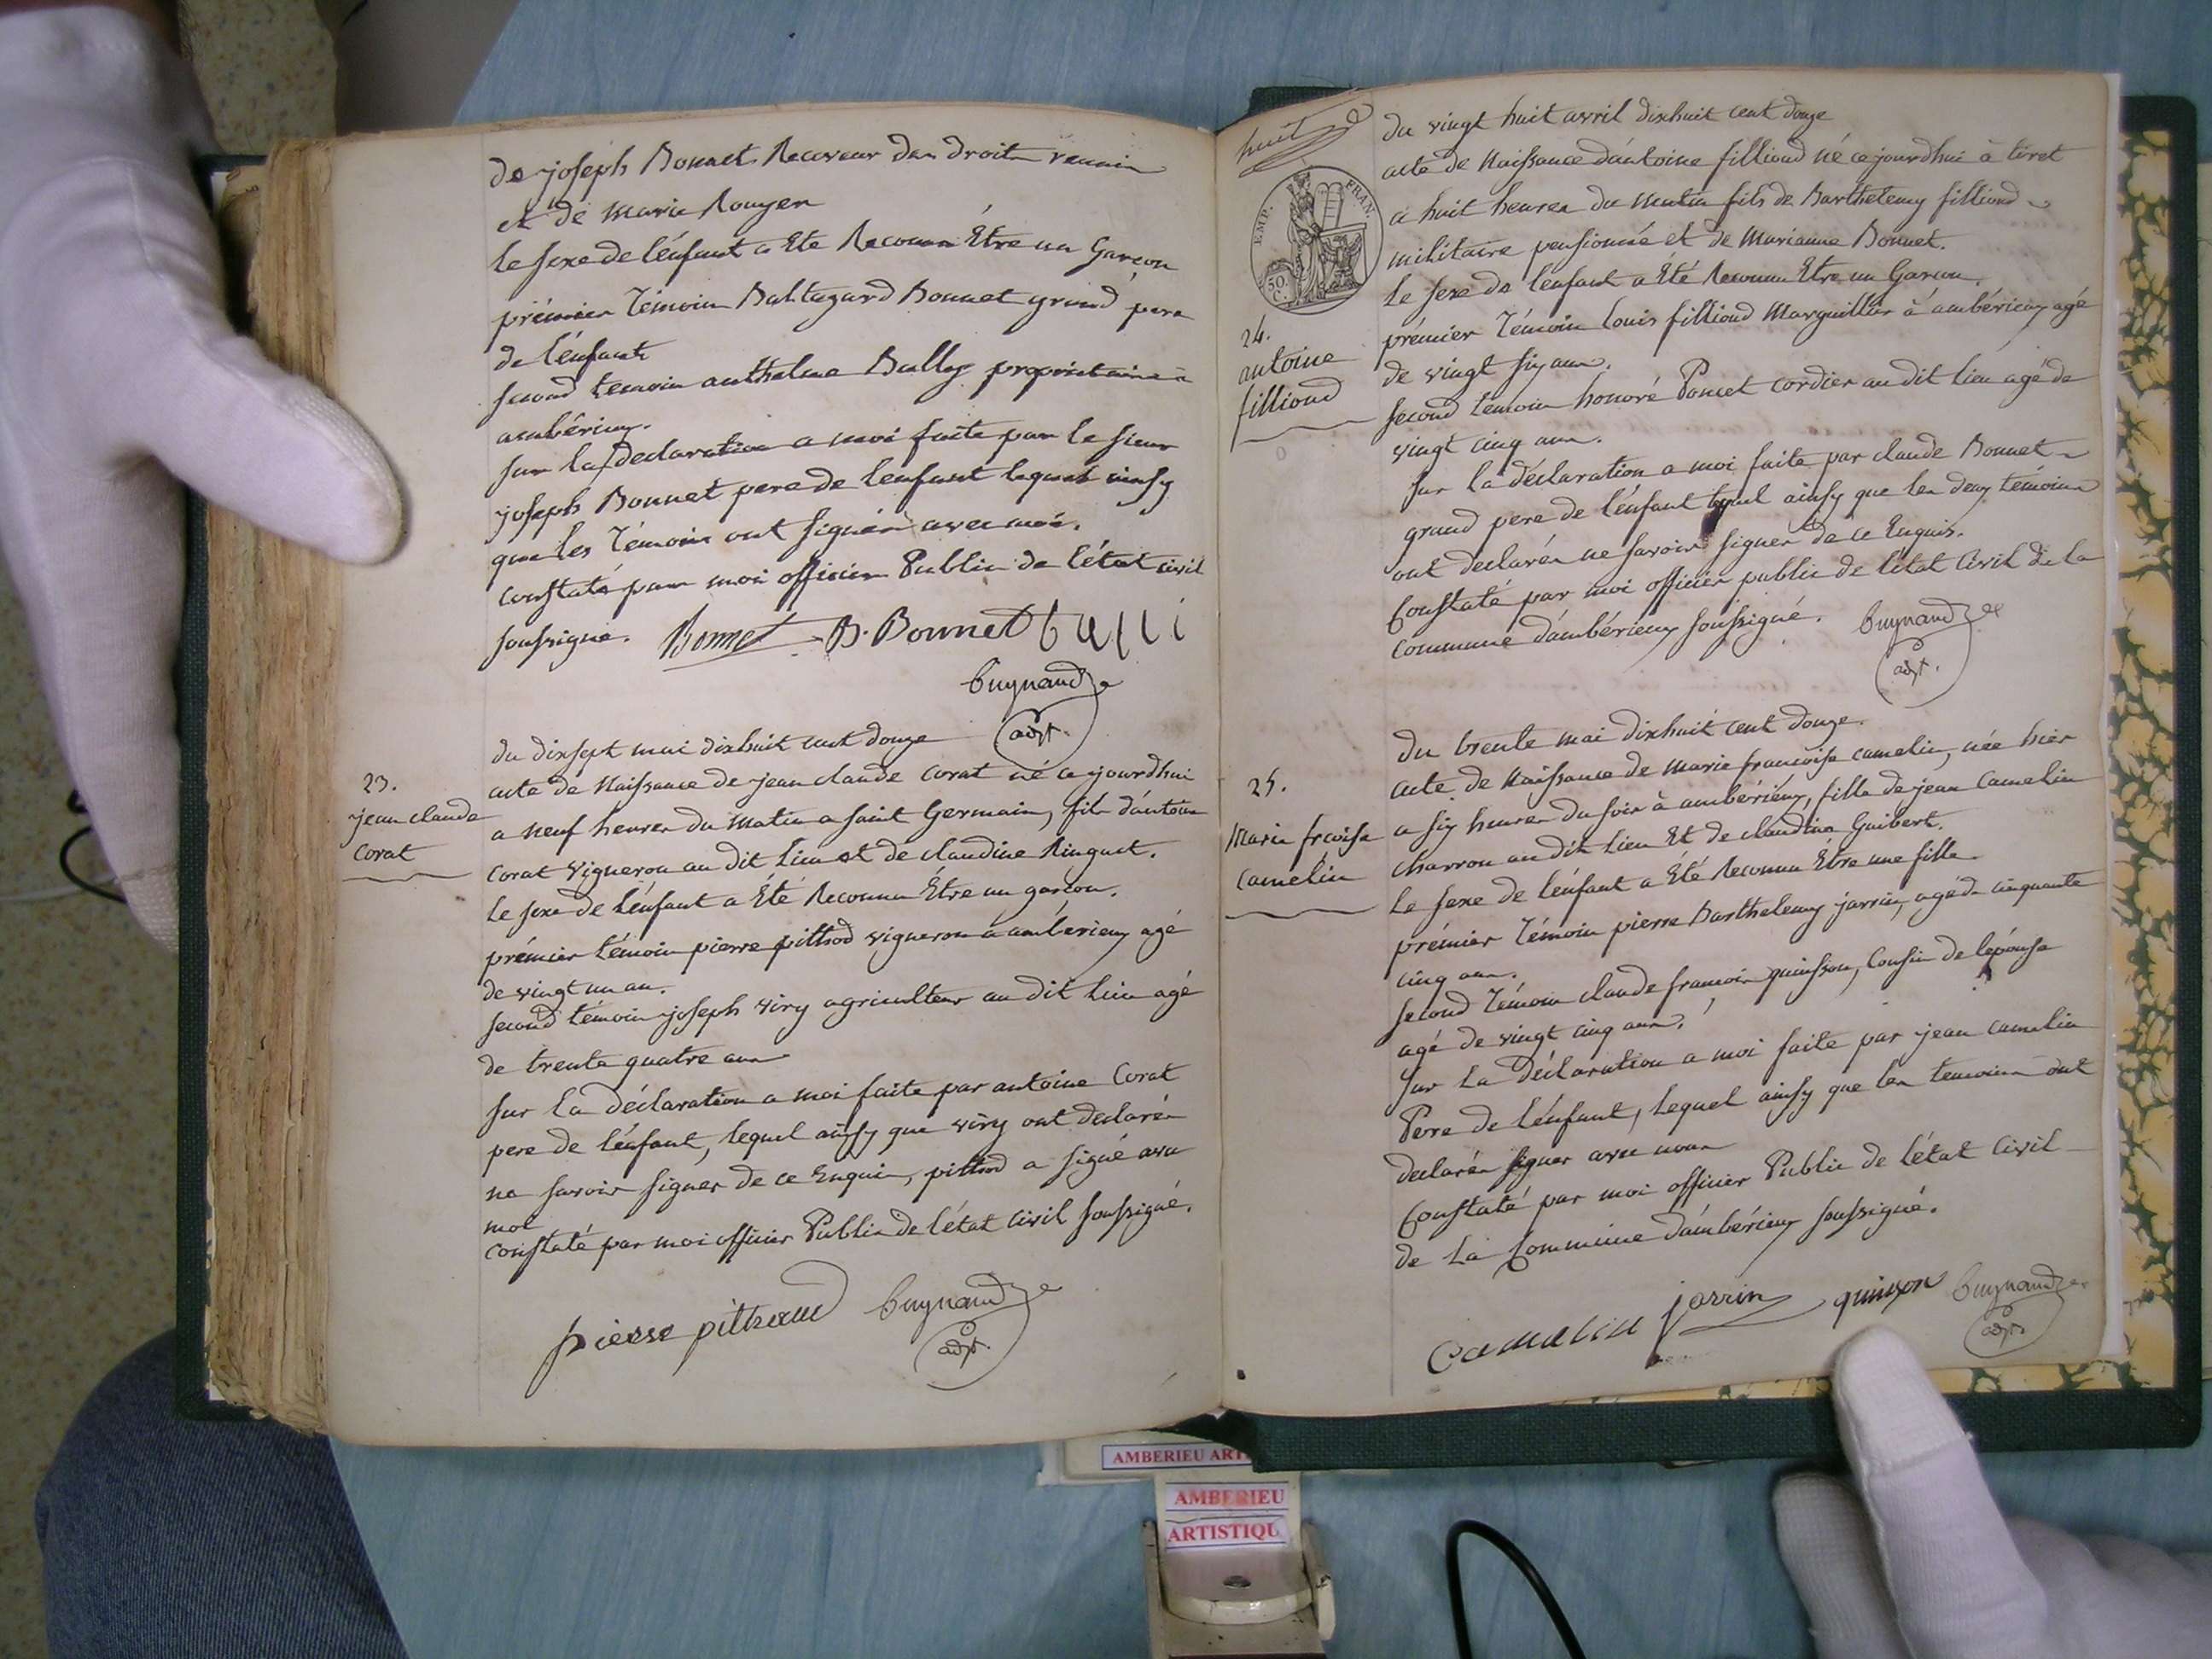 de joseph Bonnet Receveur des droits reunis
et de Marie Rouyer
le sexe de lénfant a Eté Reconnu Être un Garcon
prémier Témoin Baltazard Bonnet grand pere
de lénfant
second temoin anthelme Bully propriétaire à
ambérieux.
sur la declaration a moi faite par le sieur
joseph Bonnet pere de lenfant lequel ainsy
que les Témoins ont signés avec moi.
constaté par moi officier Public de létat civil
soussigné. Bonnet B. Bonnet bulli
buynand
adjt.
du dixsept mai dixhuit cent douze
23.
jean claude
corat
acte de Naissance de jean claude corat né ce jourdhui
a neuf heures du matin a saint Germain, fils dántoine
corat Vigneron au dit Lieu et de claudine Ringuet.
le sexe de lénfant a Été Reconnu Être un garcon.
prémier témoin pierre pittiod vigneron a ambérieux agé
de vingt un an.
second témoin joseph viry agriculteur au dit Lieu agé
de trente quatre ans
sur la déclaration a moi faite par antoine Corat
pere de lénfant, lequel ainsy que viry ont declarés
ne savoir signer de ce Enquis, pittiod a signé avec
moi
constaté par moi officier Public de létat civil soussigné.
pierre pittiod buynand
adjt.
huit
EMP. FRAN.
50.
C.
du vingt huit avril dixhuit cent douze
24.
antoine
filliond
acte de Naissance dántoine filliond né ce jourdhui à tiret
à huit heures du matin fils de Barthelemy filliond
militaire pensionné et de Marianne Bonnet.
le sexe de lenfant a Été Reconnu Etre un Garcon.
prémier Témoin louis filliond Marguillier à ámbérieux agé
de vingt six ans.
second temoin honoré Poncet cordier au dit lieu agé de
vingt cinq ans.
sur la déclaration a moi faite par claude Bonnet
grand pere de lénfant lequel ainsy que les deux témoins
ont declarés ne savoir signer de ce Enquis.
Constaté par moi officier public de létat Civil de la
commune dámbérieux soussigné. buynand
adjt.
du trente mai dixhuit cent douze.
25.
Marie frcoise
camelin
acte de Naissance de Marie francoise camelin, née hier
a six heures du soir à ambérieux, fille de jean Camelin
charron au dit Lieu Et de claudine Guibert.
Le sexe de lénfant a Été Reconnu Être une fille
prémier Témoin pierre Barthelemy jarrin, agé de cinquante
cinq ans.
second Témoin claude francois quinson, Cousin de lépouse
agé de vingt cinq ans.
sur La Déclaration a moi faite par jean camelin
Pere de lénfant, lequel ainsy que les temoins ont
declarés signer avec nous
Constaté par moi officier Public de létat Civil
de La Commune dámbérieux soussigné.
camelin jarrin quinson buynand
adjt.
AMBERIEU ART
AMBERIEU
ARTISTIQU